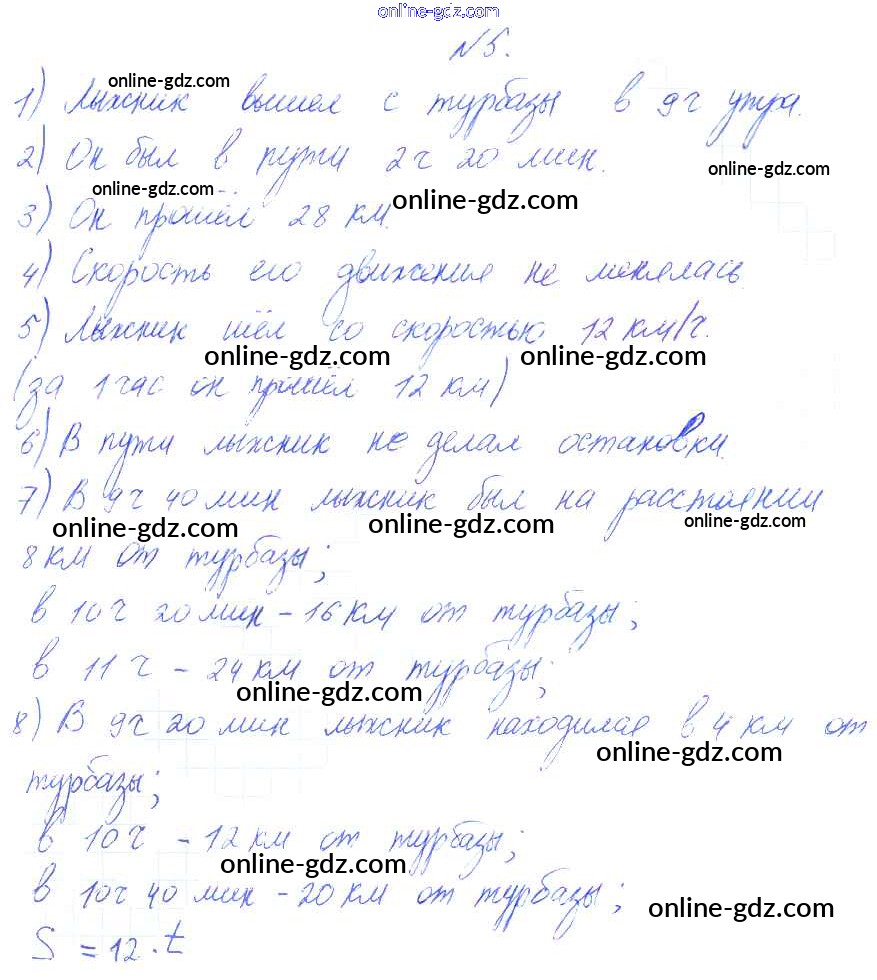 online-gdz.com
N5.
online-gdz.com
1) Лыжник вышел с турбазы в 9 ч утра.
2) Он был в пути 2 ч 20 мин.
online-gdz.com
online-gdz.com
online-gdz.com
3) Он прошёл 28 км.
4) Скорость его движения не менялась
5) Лыжник шёл со скоростью 12 км/ч.
online-gdz.com online-gdz.com
(за 1 час он прошёл 12 км)
6) В пути лыжник не делал остановки.
7) В 9ч 40 мин лыжник был на расстоянии
online-gdz.com online-gdz.com online-gdz.com
8 км от турбазы;
в 10 ч 20 мин - 16 км от турбазы;
в 11 ч - 24 км от турбазы;
online-gdz.com
8) В 9ч 20 мин лыжник находился в 4 км от
online-gdz.com
турбазы;
в 10 ч - 12 км от турбазы;
online-gdz.com
в 10ч 40 мин - 20 км от турбазы;
online-gdz.com
S = 12 · t